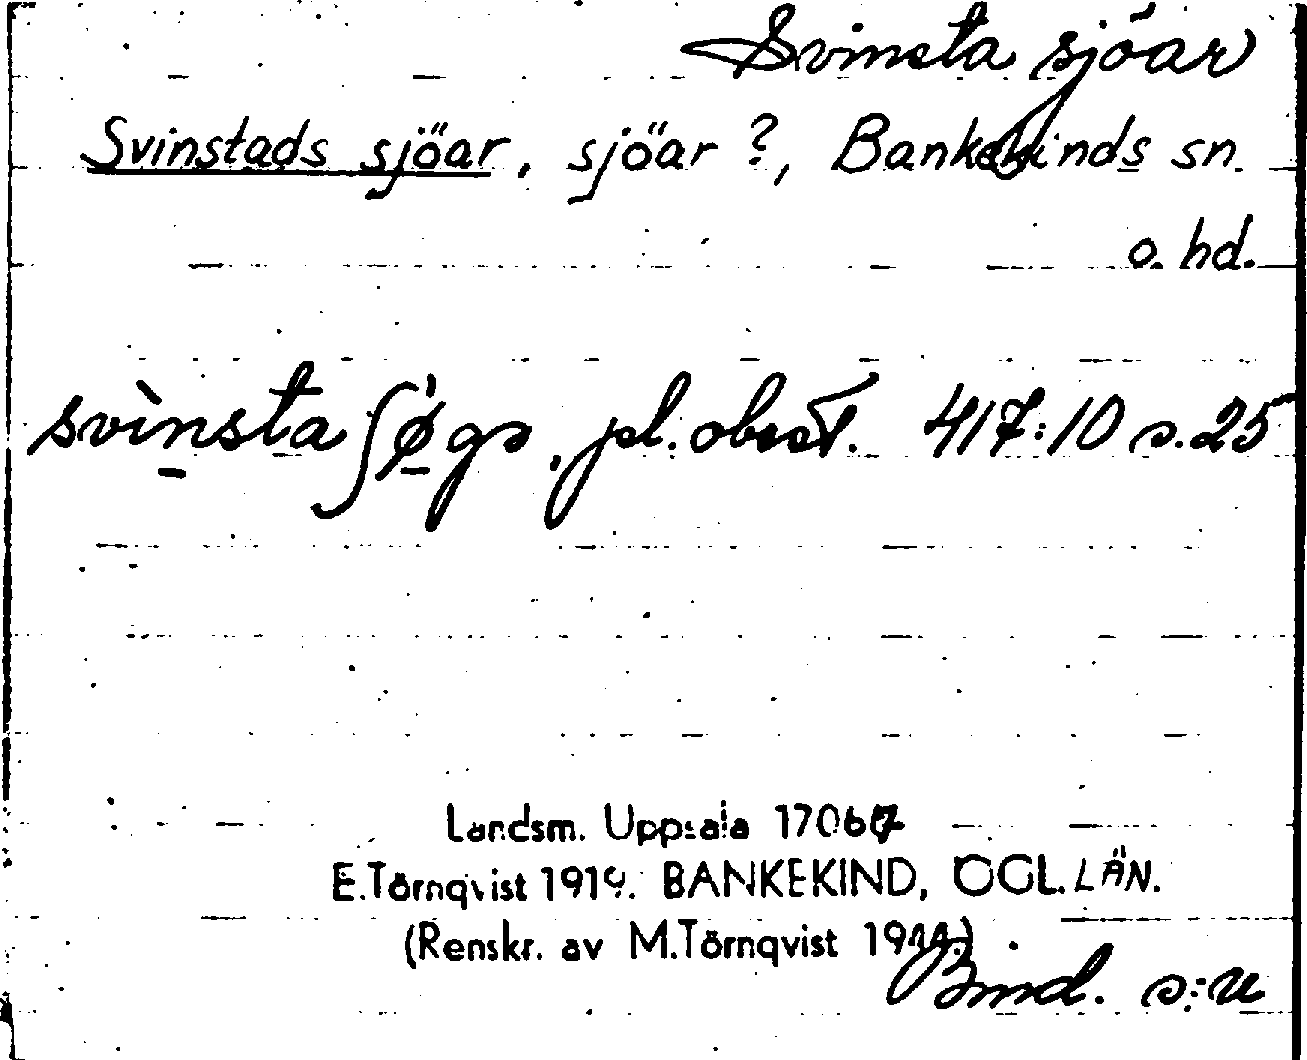 Svinsta sjöar
Svinstads sjöar, sjöar ?, Bankekinds sn
o. hd.
svìnsta ʃø̀gs, pl. obest. 417:10 s. 25
Landsm. Uppsala 17067
E. Törnqvist 1919. BANKEKIND, ÖGL. LÄN.
(Renskr. av M. Törnqvist 1944.)
Bind. s:u